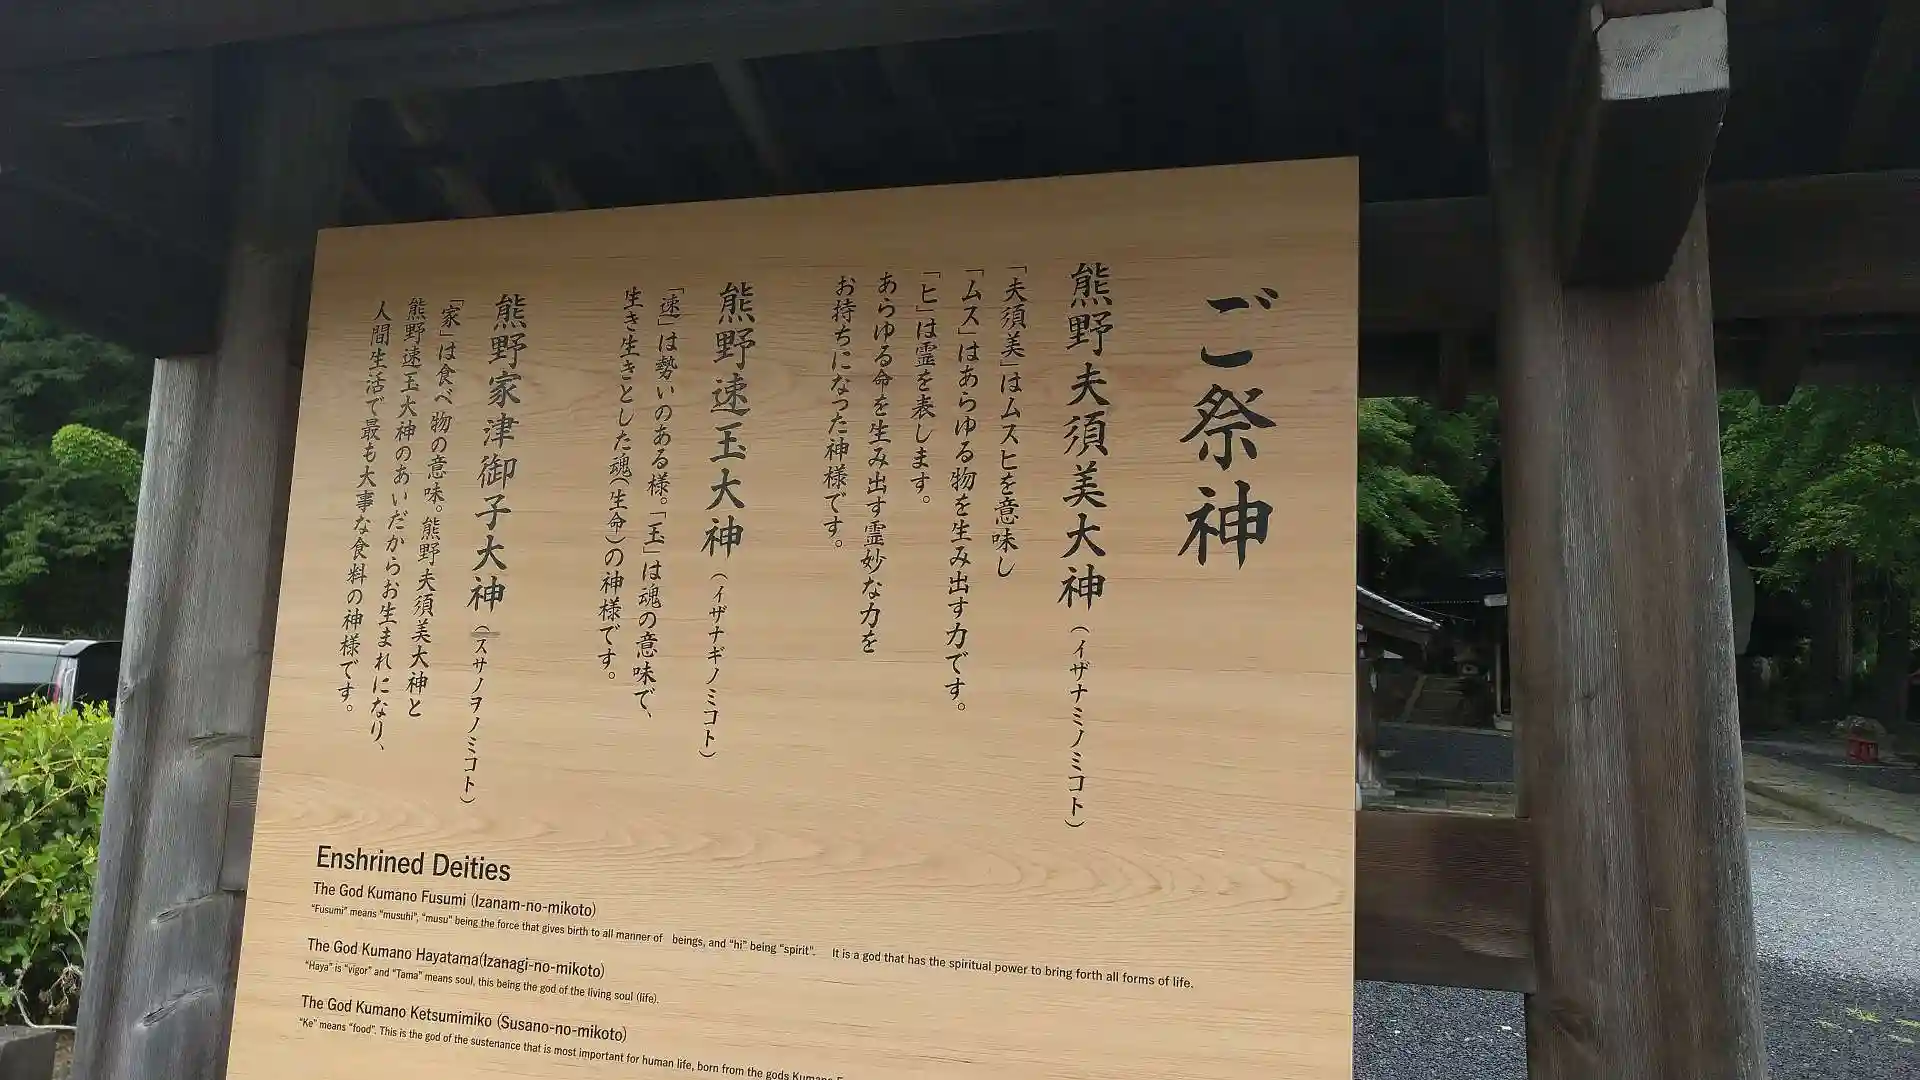 ご祭神
熊野夫須美大神（イザナミノミコト）
「夫須美」はムスヒを意味し
「ムス」はあらゆる物を生み出す力です。
「ヒ」は霊を表します。
あらゆる命を生み出す霊妙な力を
お持ちになった神様です。
熊野速玉大神（イザナギノミコト）
「速」は勢いのある様。「玉」は魂の意味で、
生き生きとした魂（生命）の神様です。
熊野家津御子大神（スサノヲノミコト）
「家」は食べ物の意味。熊野夫須美大神と
熊野速玉大神のあいだからお生まれになり、
人間生活で最も大事な食料の神様です。
Enshrined Deities
The God Kumano Fusumi (Izanam-no-mikoto)
"Fusumi" means "musuhi", "musu" being the force that gives birth to all manner of beings, and "hi" being "spirit". It is a god that has the spiritual power to bring forth all forms of life.
The God Kumano Hayatama(Izanagi-no-mikoto)
"Haya" is "vigor" and "Tama" means soul, this being the god of the living soul (life).
The God Kumano Ketsumimiko (Susano-no-mikoto)
"Ke" means "food". This is the god of the sustenance that is most important for human life, born from the gods Kumano